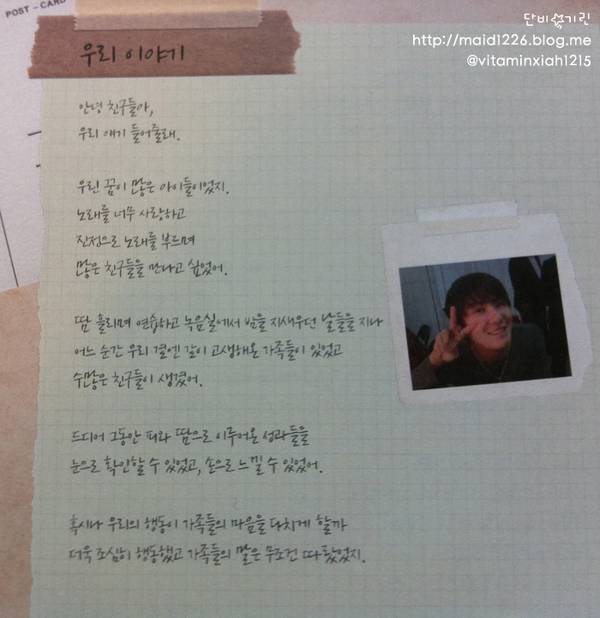 POST-CARD
단비쉼기린
http://maid1226.blog.me
@vitaminxiah1215
우리 이야기
안녕 친구들아,
우리 얘기 들어줄래.
우린 꿈이 많은 아이들이었지.
노래를 너무 사랑하고
진정으로 노래를 부르며
많은 친구들을 만나고 싶었어.
땀 흘리며 연습하고 녹음실에서 밤을 지새우던 날들을 지나
어느 순간 우리 곁엔 같이 고생해온 가족들이 있었고
수많은 친구들이 생겼어.
드디어 그동안 피와 땀으로 이루어온 성과들을
눈으로 확인할 수 있었고, 손으로 느낄 수 있었어.
혹시나 우리의 행동이 가족들의 마음을 다치게 할까
더욱 조심히 행동했고 가족들의 말은 무조건 따랐었지.